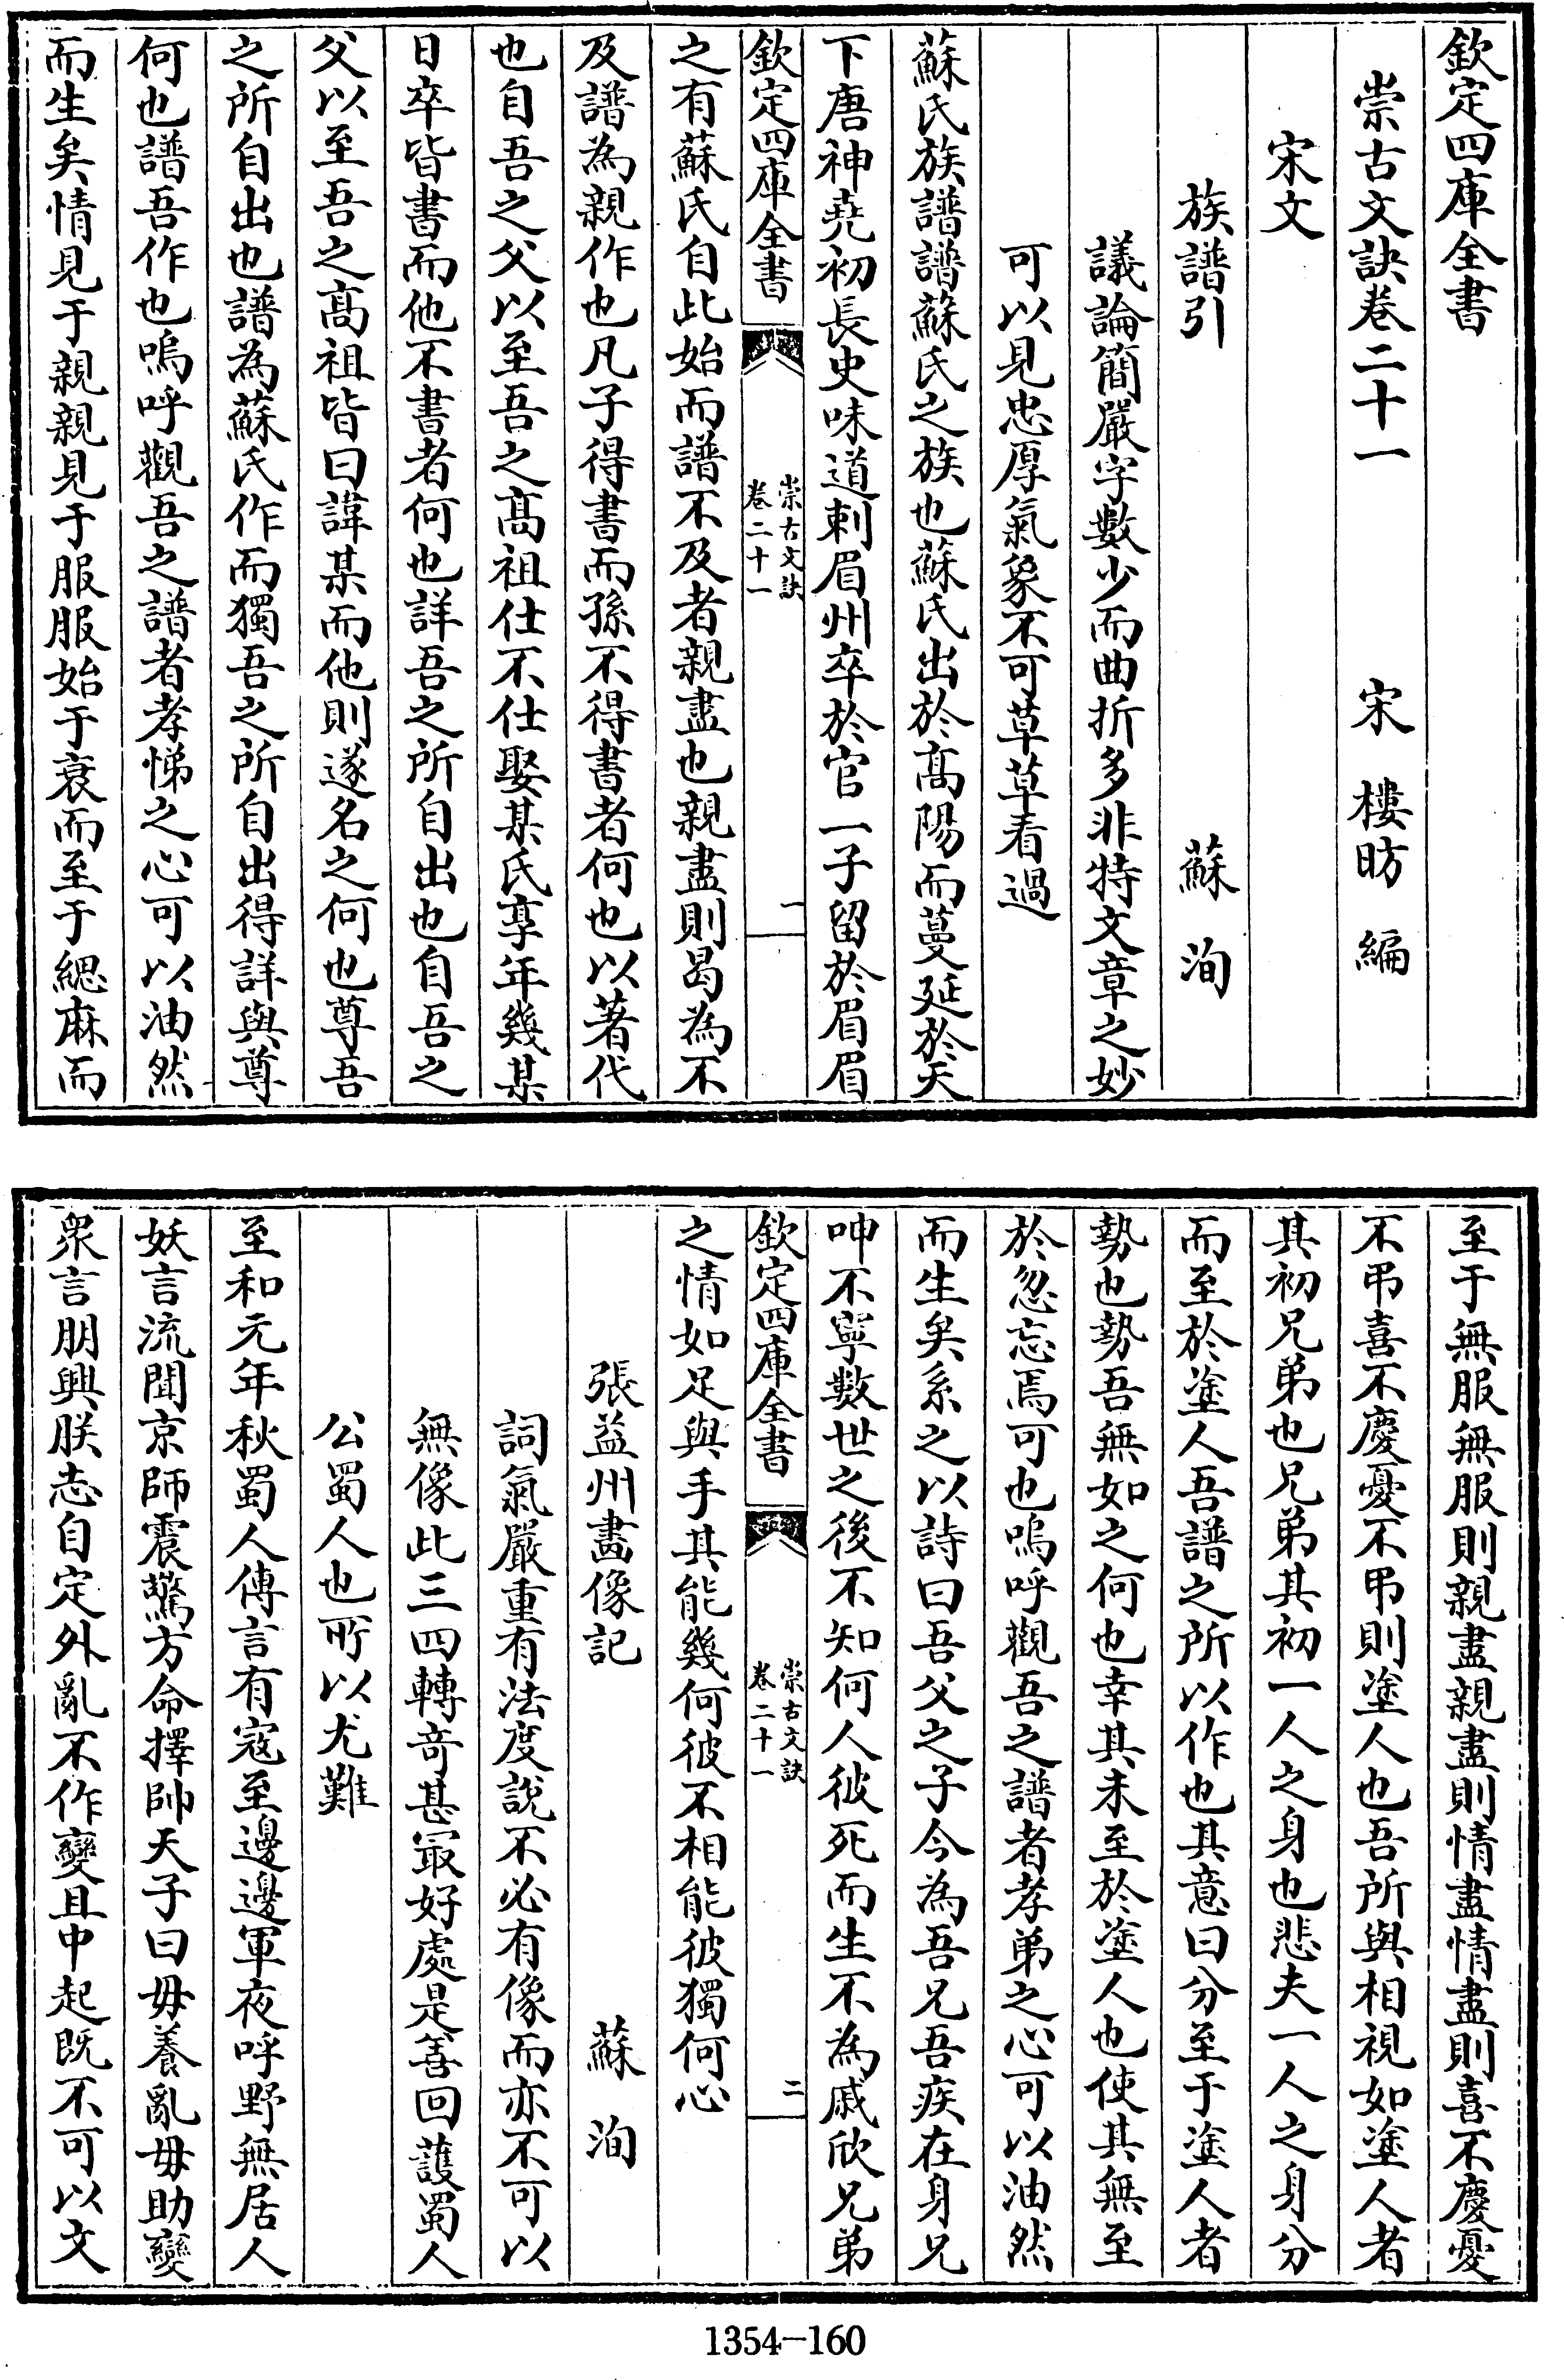 欽定四庫全書
崇古文訣卷二十一　宋　樓昉　編
宋文
族譜引　蘇　洵
議論簡嚴字數少而曲折多非特文章之妙
可以見忠厚氣象不可草草看過
蘇氏族譜譜蘇氏之族也蘇氏出於髙陽而蔓延於天
下唐神堯初長史味道刺眉州卒於官一子留於眉眉
欽定四庫全書
崇古文訣
卷二十一
一
之有蘇氏自此始而譜不及者親盡也親盡則曷為不
及譜為親作也凡子得書而孫不得書者何也以著代
也自吾之父以至吾之髙祖仕不仕娶某氏享年幾某
日卒皆書而他不書者何也詳吾之所自出也自吾之
父以至吾之髙祖皆曰諱某而他則遂名之何也尊吾
之所自出也譜為蘇氏作而獨吾之所自出得詳與尊
何也譜吾作也嗚呼觀吾之譜者孝悌之心可以油然
而生矣情見于親親見于服服始于衰而至于緦麻而
至于無服無服則親盡親盡則情盡情盡則喜不慶憂
不弔喜不慶憂不弔則塗人也吾所與相視如塗人者
其初兄弟也兄弟其初一人之身也悲夫一人之身分
而至於塗人吾譜之所以作也其意曰分至于塗人者
勢也勢吾無如之何也幸其未至於塗人也使其無至
於忽忘焉可也嗚呼觀吾之譜者孝弟之心可以油然
而生矣系之以詩曰吾父之子今為吾兄吾疾在身兄
呻不寧數世之後不知何人彼死而生不為戚欣兄弟
欽定四庫全書
崇古文訣
卷二十一
二
之情如足與手其能幾何彼不相能彼獨何心
張益州畫像記　蘇　洵
詞氣嚴重有法度說不必有像而亦不可以
無像此三四轉竒甚冣好處是善回護蜀人
公蜀人也所以尤難
至和元年秋蜀人傳言有寇至邊邊軍夜呼野無居人
妖言流聞京師震驚方命擇帥天子曰毋養亂毋助變
衆言朋興朕志自定外亂不作變且中起既不可以文
1354-160